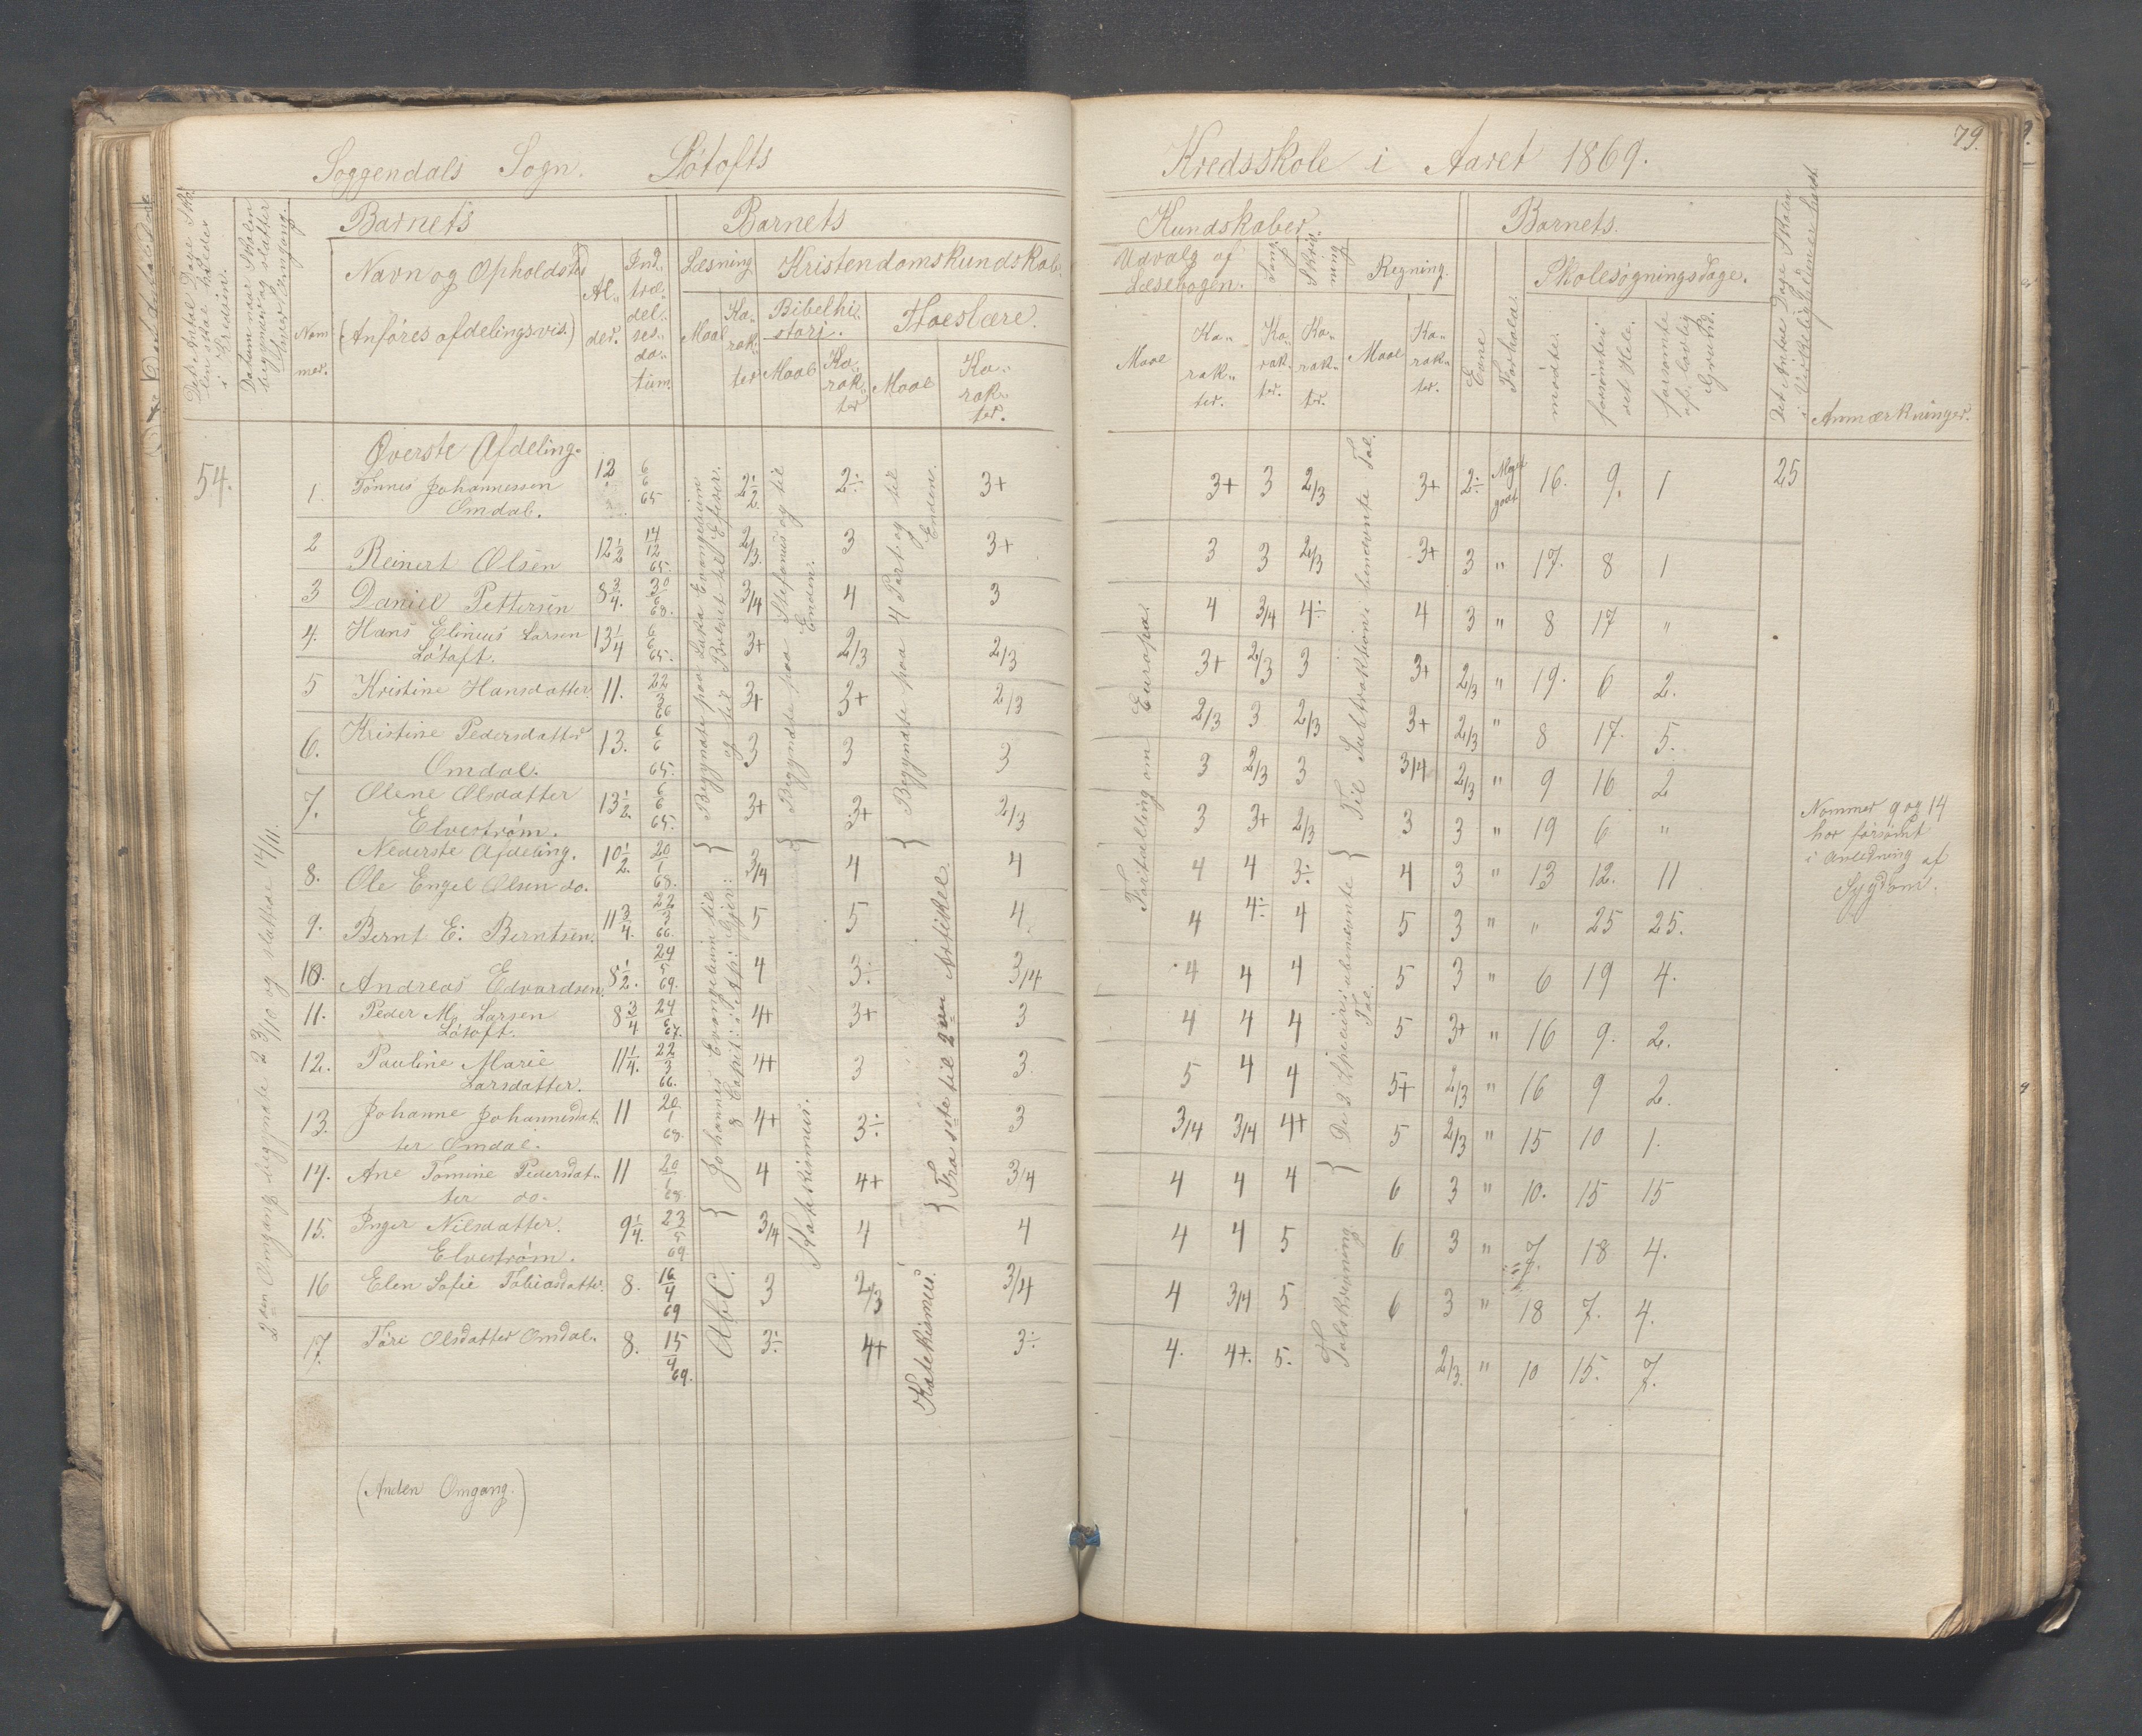 Soggendals Sogn. Løtofts
Barnets
Barnets
Det Antal Dage Sko-
len skal holdes
i Kredsen.
Datum naar Skolen
begynder og slutter
hver Omgang.
Nom-
mer.
Navn og Opholdsted
(Anføres afdelingsvis.)
Al-
der.
Ind-
træ-
del-
ses-
da-
tum.
Læsning
Maal
Ka-
rak-
ter
Kristendomskundskab.
Bibelhi-
stori.
Maal
Ka-
rak-
ter
Troeslære.
Maal
Ka-
rak-
ter.
54.
2den Omgang begyndte 23/10 og sluttae 14/11.
Øverste Afdeling.
1. Tønnes Johannessen 12 6/6 65 2½ 2÷ 3+
Omdal.
2 Reinert Olsen 12½ 14/12 65. 2/3. 3 3+
3 Daniel Pettersen 8¾. 30/6 68. 3/4 4 3
4. Hans Elineus Larsen 13¼ 6/6 65. 3+ 2/3 2/3
Løtoft.
5 Kristine Hansdatter 11. 22/3 66 3+ 3+ 2/3
6. Kristine Pedersdatter 13. 6/6 65. 3 3 3
Omdal.
7. Olene Olsdatter 13½. 6/6 65. 3+ 3+ 2/3
Elvestrøm.
Nederste Afdeling.
8. Ole Engel Olsen do. 10½. 20/1 68. 3/4 4 4
9. Bernt E. Berntsen. 11¾. 22/3 66. 5 5 4
10. Andreas Edvardsen. 8½. 24/5 69. 4 3÷ 3/4
11. Peder M. Larsen 8¾ 24/6 67. 4+ 3+ 3
Løtoft.
12. Pauline Marie 11¼. 22/3 66. 4+ 3 3
Larsdatter.
13. Johanne Johannesdat- 11 20/1 68. 4+ 3÷ 3
ter Omdal.
14. Ane Tomine Pedersdat- 11 20/1 68. 4 4+ 3/4
ter do.
15. Inger Nilsdatter. 9¼. 23/5 69 3/4 4 4
Elvestrøm.
16 Elen Sofie Tobiasdatter. 8. 16/4 69 3 2/3 3/4
17. Tøri Olsdatter Omdal. 8. 15/4 69. 3÷ 4+ 3÷
Begyndte paa Lukas Evangelium
og til Brevet til Efeser.
Begyndte paa Stefanus og til
Enden.
Begyndte paa 4 Part og til
Enden.
Johannes Evangelium til
8 Capit: i Ap: Gjer:
Katekismus.
Fra 1ste til 2den Artikel.
AbC.
Katekismus.
(Anden Omgang.)
79.
Kredsskole i Aaret 1869.
Kundskaber
Barnets.
Udvalg af
Læsebogen.
Maal
Ka-
rak-
ter.
Sang
Ka-
rak-
ter.
Skriv-
ning
Ka-
rak-
ter.
Regning.
Maal
Ka-
rak-
ter.
Evne
Forhold.
Skolesøgningsdage.
mødte.
forsømte i
det Hele.
forsømte
af lovlig
Grund.
Det Antal Dage Skolen
i Virkeligheden er holdt
Anmærkninger.
3+ 3 2/3 3+ 2÷ Meget godt 16. 9. 1 25
3 3 2/3 3+ 3 " 17. 8 1
4 3/4 4÷ 4 3 " 8 17 "
3+ 2/3 3 3+ 2/3 " 19. 6 2.
2/3 3 2/3 3+ 2/3 " 8 17. 5.
3 2/3 3 3/4 2/3 " 9 16 2
3 3+ 2/3 3 3 " 19 6 "
4 4 3÷ 4 3 " 13 12. 11
4 4÷ 4 5 3 " " 25 25.
4 4 4 5 3 " 6 19 4.
4 4 4 5 3+ " 16 9. 2.
5 4 4 5+ 2/3 " 16 9 2.
3/4 3/4 4+ 5 2/3 " 15 10 1.
4 4 4 6 3 " 10. 15 15
4 4 5 6 3 " 7. 18 4.
4 3/4 5 6 3 " 18 7. 4.
4. 4+. 5. 2/3. " 10 15. 7.
Fortælling om Europa.
Til Subtraktion i benevnte Tal.
De 2 Specier i ubenevnte
Tal.
Talskrivning.
Nommer 9 og 14
har forsømt
i Anledning af
Sygdom.